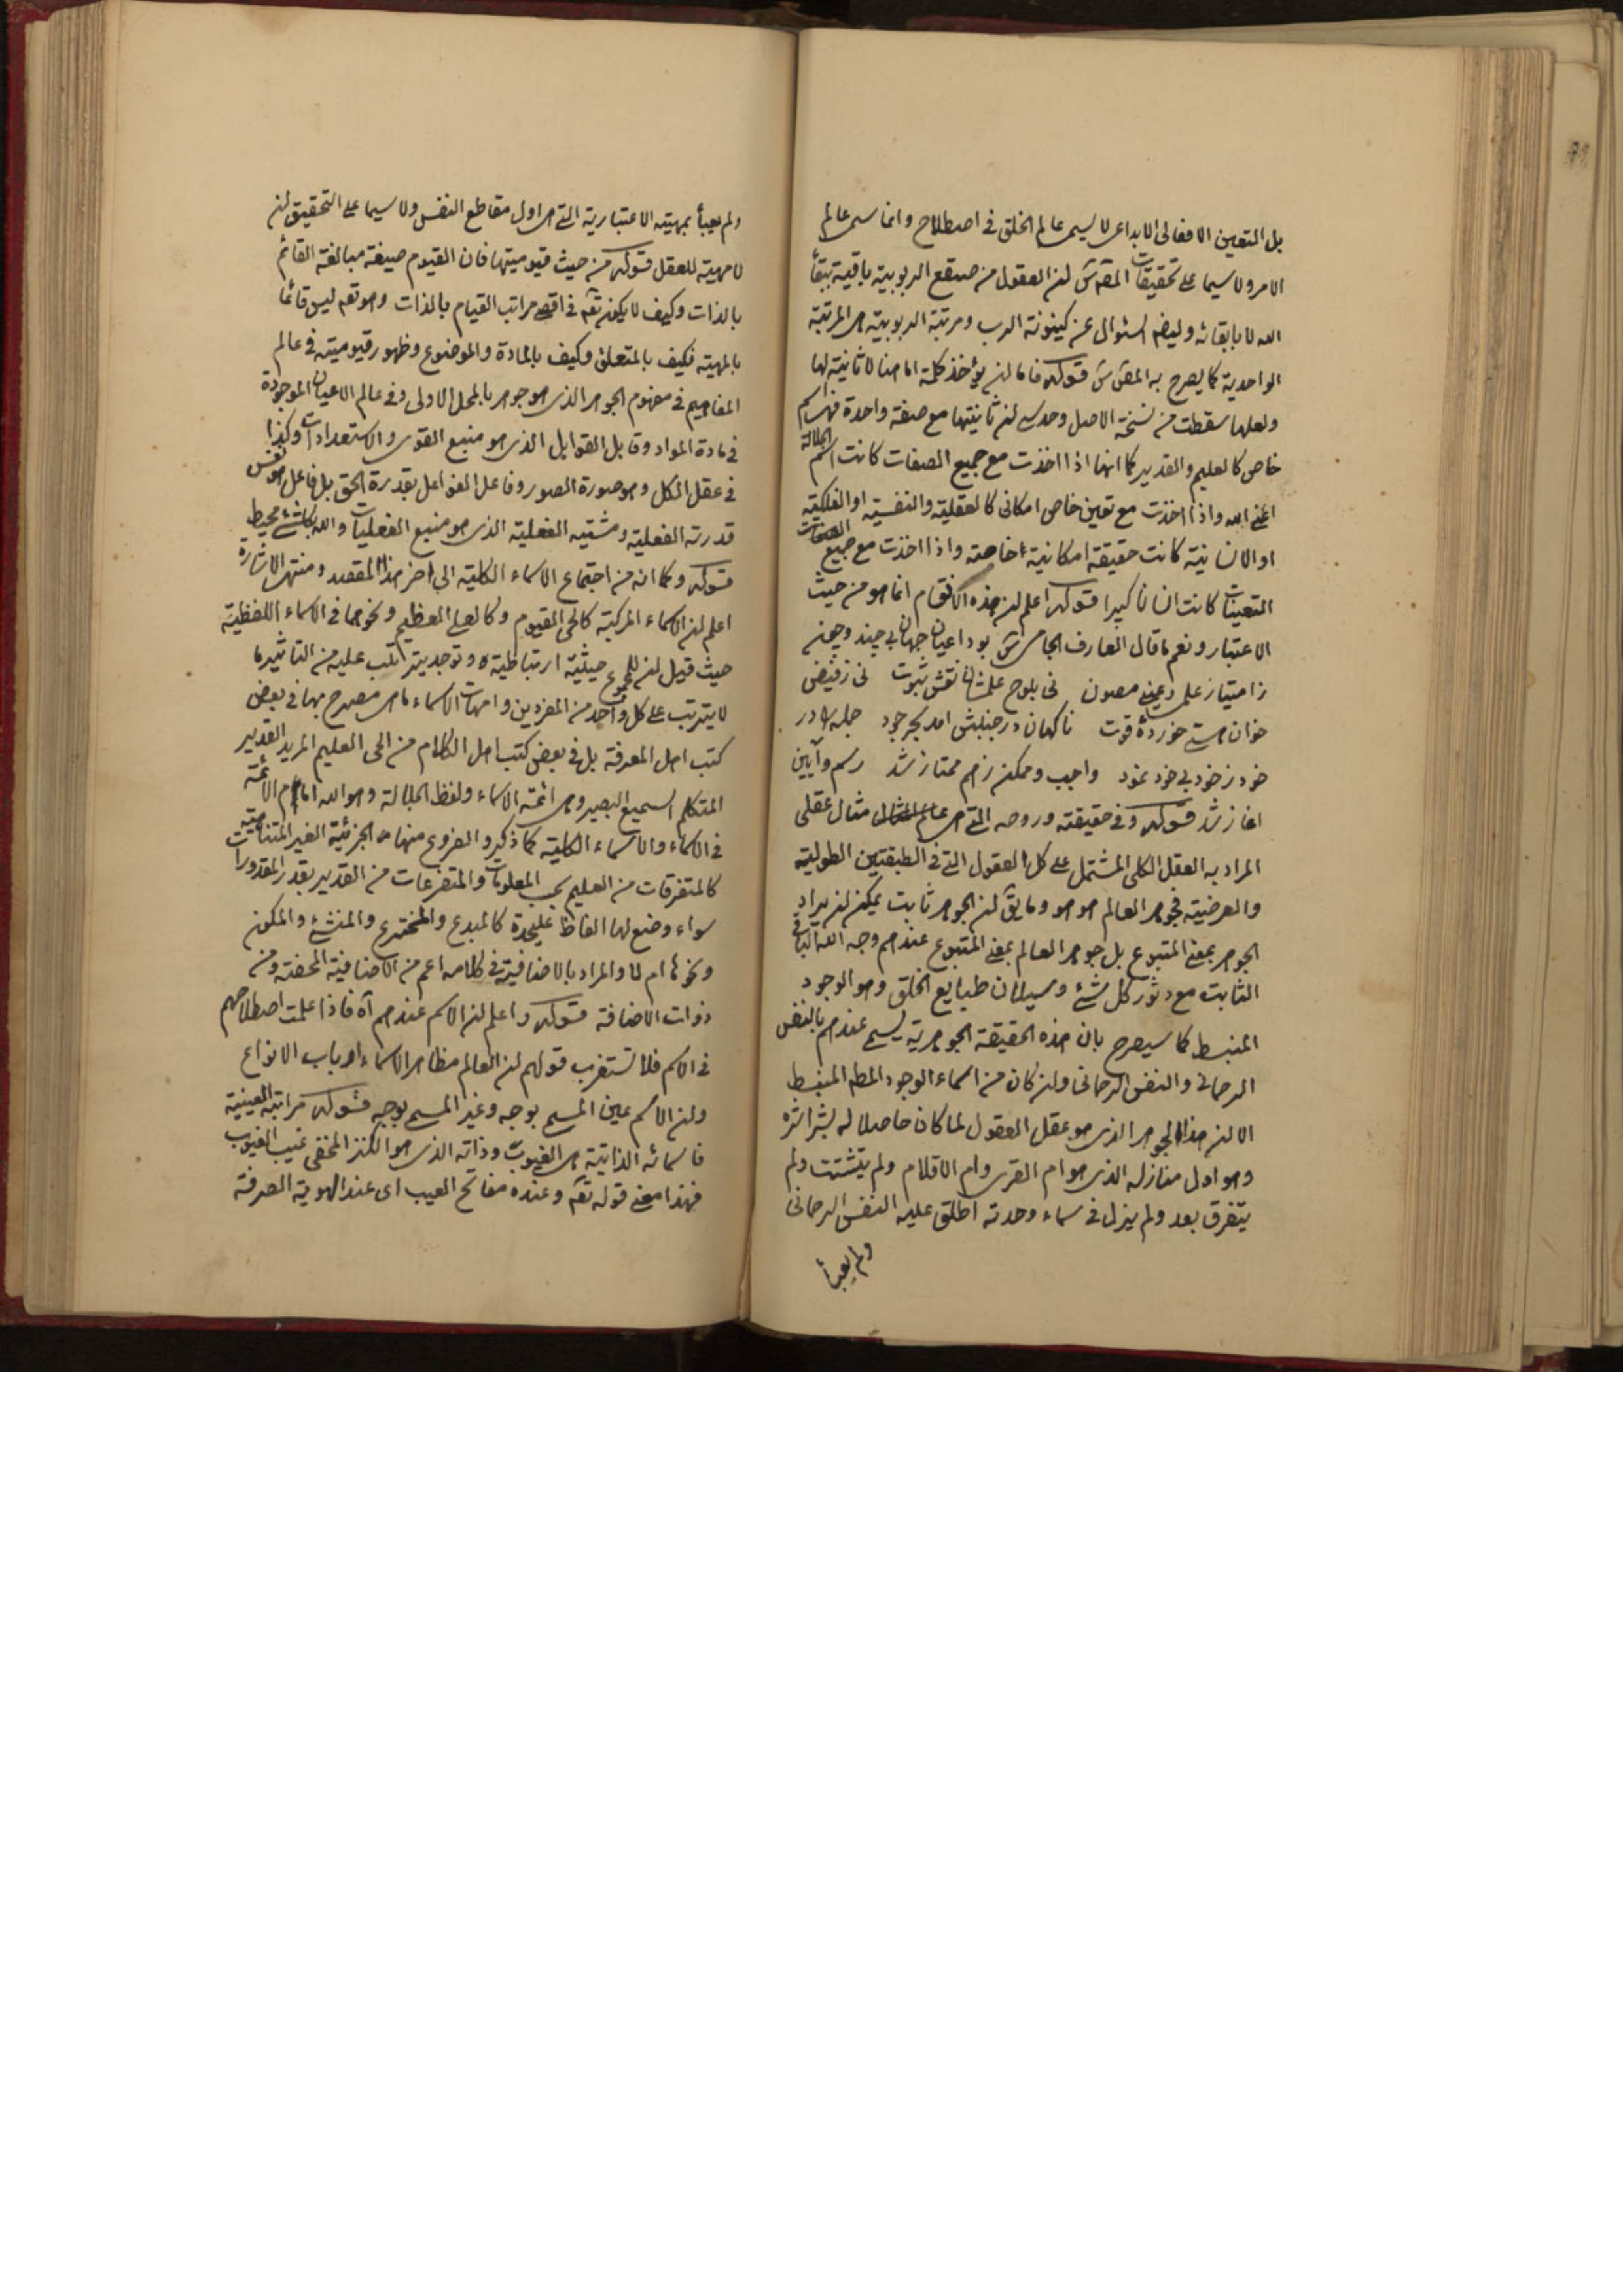 بل التعين الافعالی الابداعی لا یسمی عالم الخلق فی اصطلاح وانما سمی عالم
الامر ولا سیما علی تحقیقات المص قس ان العقول من صقع الربوبیة باقیة ببقاء
الله لا بابقائه ولیضم السئوال عن کینونة الرب ومرتبة الربوبیة هی المرتبة
الواحدیة کما یصرح به المص قس قوله فاما ان یؤخذ کلمة اما هنا لا ثانیة لها
ولعلها سقطت من نسخة الاصل وحدسی ان ثانیتها مع صفة واحدة فهی اسم
خاص کالعلیم والقدیر کما انها اذا اخذت مع جمیع الصفات کانت اسم الجلالة
اعنی الله واذا اخذت مع تعین خاص امکانی کالعقلیة والنفسیة او الفلکیة
او الانسانیة کانت حقیقة امکانیة خاصة واذا اخذت مع جمیع
التعینات کانت انسانا کبیرا قوله اعلم ان هذه الاقسام انما هو من حیث
الاعتبار ونعم ما قال العارف الجامی قس بود اعیان جهان بی چند وچون
ز امتیاز علمی وعینی مصون نی بلوح علمشان نقش ثبوت نی ز فیض
خوان هستی خورده قوت ناکهان در جنبش امد بحر جود جمله را در
خود ز خود بی خود نمود واجب وممکن ز هم ممتاز شد رسم وآیین
اغاز شد قوله وفی حقیقته وروحه التی هی عالم المثال مثال عقلی
المراد به العقل الکلی المشتمل علی کل العقول التی فی الطبقتین الطولیة
والعرضیة فجوهر العالم هو هو وما یق ان الجوهر ثابت یمکن ان یراد
الجوهر بمعنی المتبوع بل جوهر العالم بمعنی المتبوع عندهم وجه الله الباقی
الثابت مع دثور کل شئ وسیلان طبایع الخلق وهو الوجود
المنبسط کما سیصرح بان هذه الحقیقة الجوهریة یسمی عندهم بالنفس
الرحمانی والنفس الرحمانی وان کان من اسماء الوجود المط المنبسط
الا ان هذا الجوهر الذی هو عقل العقول لما کان حاصلا له بشراشره
وهو اول منازله الذی هو ام القری وام الاقلام ولم یتشتت ولم
یتفرق بعد ولم ینزل فی سماء وحدته اطلق علیه النفس الرحمانی
ولم یعبأ
ولم یعبأ بمهیته الاعتباریة التی هی اول مقاطع النفس ولا سیما علی التحقیق ان
لا مهیة للعقل قوله من حیث قیومیتها فان القیوم صیغة مبالغة القائم
بالذات وکیف لا یکون تعه فی اقصی مراتب القیام بالذات وهو تعه لیس قائما
بالمهیة فکیف بالمتعلق وکیف بالمادة والموضوع وظهور قیومیته فی عالم
المفاهیم فی مفهوم الجوهر الذی هو جوهر بالحمل الاولی وفی عالم الاعیان الموجودة
فی مادة المواد وقابل القوابل الذی هو منبع القوی والاستعدادات وکذا
فی عقل الکل وهو صورة الصور وفاعل الفواعل بقدرة الحق بل فاعل هو نفس
قدرته الفعلیة ومشیته الفعلیة الذی هو منبع الفعلیات والله بکل شئ محیط
قوله وکما انه من اجتماع الاسماء الکلیة الی اخر هذا المقصد ومنتهی الاشارة
اعلم ان الاسماء المرکبة کالحی القیوم وکالعلی العظیم ونحوهما فی الاسماء اللفظیة
حیث قیل ان للمجموع حیثیة ارتباطیة وتوحدیة یترتب علیه من التاثیر ما
لا یترتب علی کل واحد من المفردین وامهات الاسماء ما هی مصرح بها فی بعض
کتب اهل المعرفة بل فی بعض کتب اهل الکلام من الحی العلیم المرید القدیر
المتکلم السمیع البصیر وهی ائمة الاسماء ولفظ الجلالة وهو الله امام الائمة
فی الاسماء والاسماء الکلیة کما ذکر والفروع منها هی الجزئیة الغیر المتناهیة
کالمتفرقات من العلیم بحسب المعلومات والمتفرعات من القدیر بقدر المقدورات
سواء وضع لها الفاظ علیحدة کالمبدع والمخترع والمنشئ والمکون
ونحوها ام لا والمراد بالاضافیة فی کلامه اعم من الاضافیة المحضة ومن
ذوات الاضافة قوله واعلم ان الاسم عندهم آه فاذا علمت اصطلاحهم
فی الاسم فلا تستغرب قولهم ان العالم مظاهر الاسماء ارباب الانواع
وان الاسم عین المسمی بوجه وغیر المسمی بوجه قوله مراتبه الغیبیة
فاسمائه الذاتیة هی الغیوب وذاته الذی هو الکنز المخفی غیب الغیوب
فهذا معنی قوله تعه وعنده مفاتح الغیب ای عند الهویة الصرفة